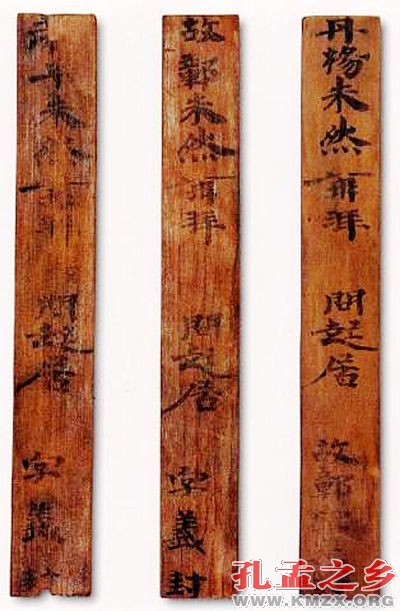 丹楊朱然再拜 問起居 故鄣
故鄣朱然再拜 問起居 字義封
弟子朱然再拜 問起居 字義封
孔孟之乡
WWW.KMZX.ORG